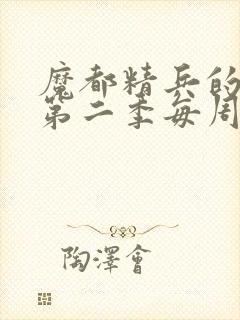 魔都精兵的
第二季每周
陶澤會